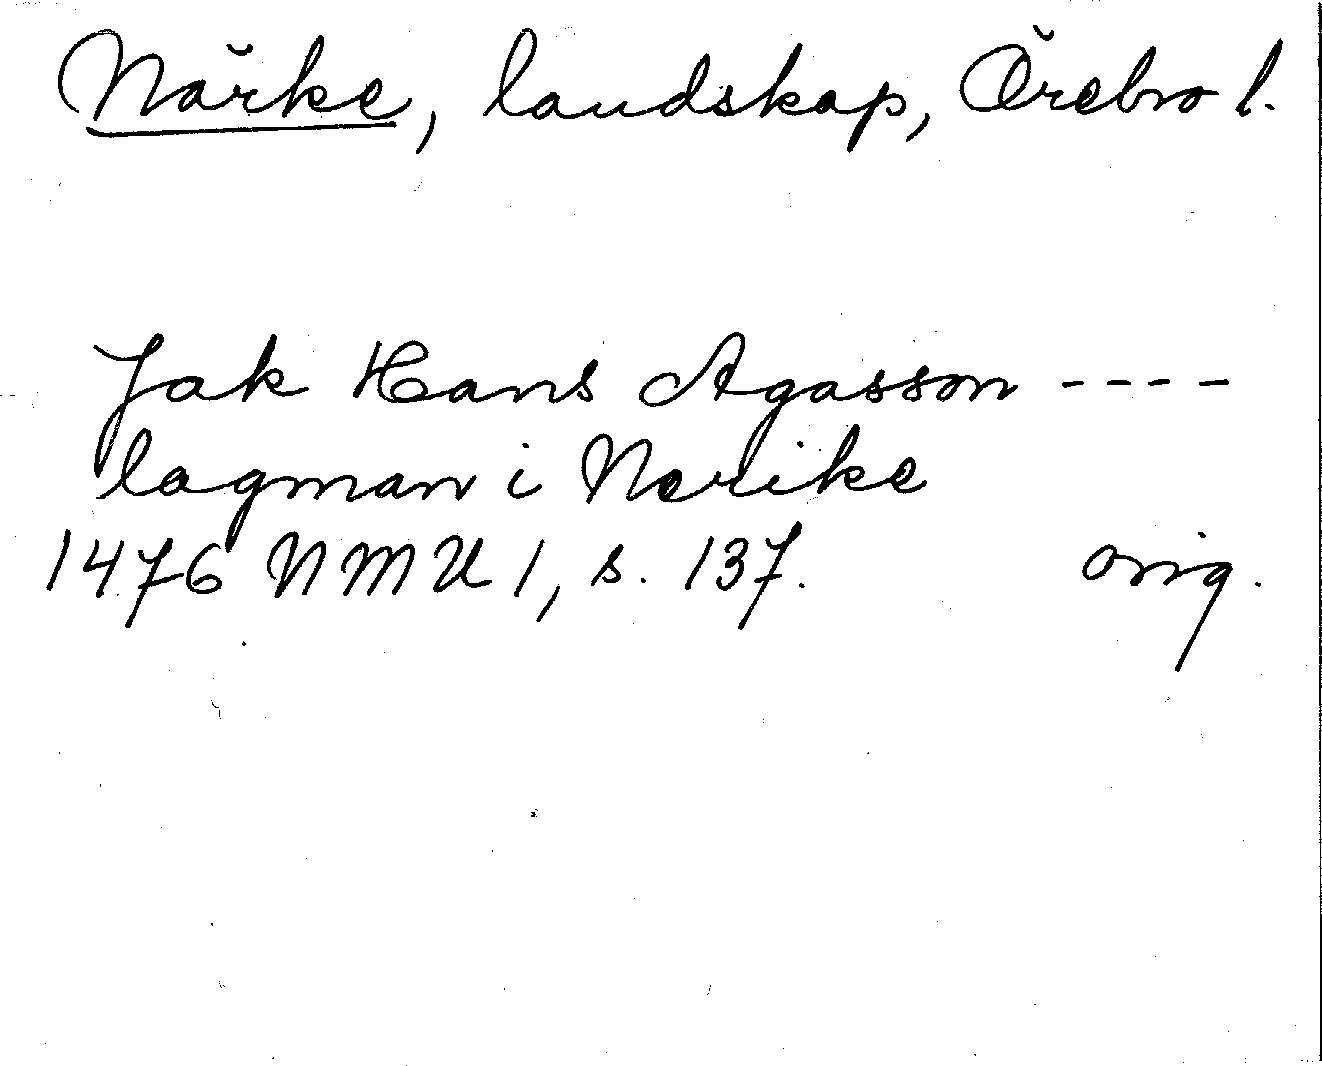 Närke, landskap, Örebro l.
Jak Hans Agasson ----
lagman i Nerike
1476 NMU 1, s. 137. orig.